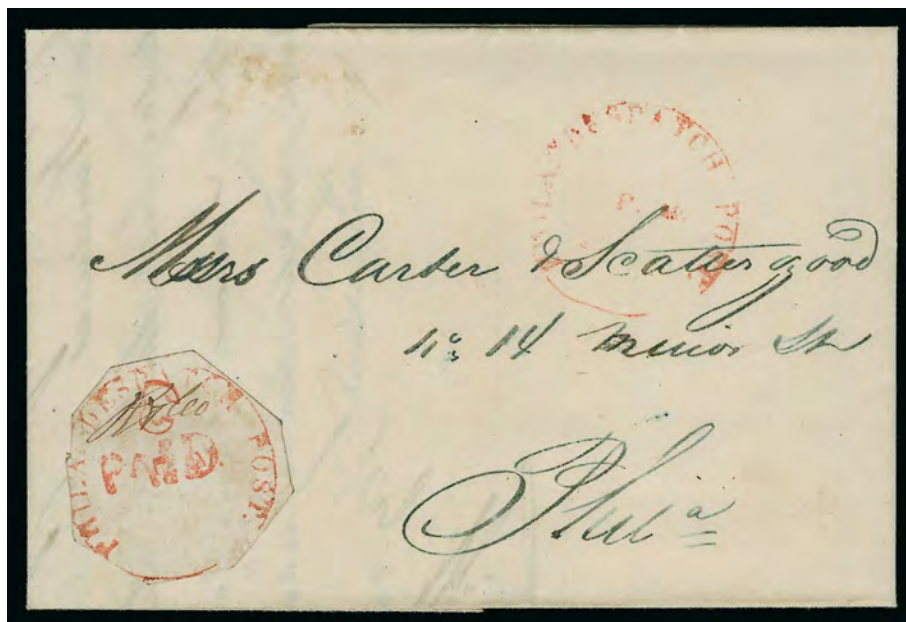 PHILAD. DESPATCH POST
Messrs Carter & Scattergood
No. 14 Minor St
Phila
PHILA. DESPATCH POST.
PAID